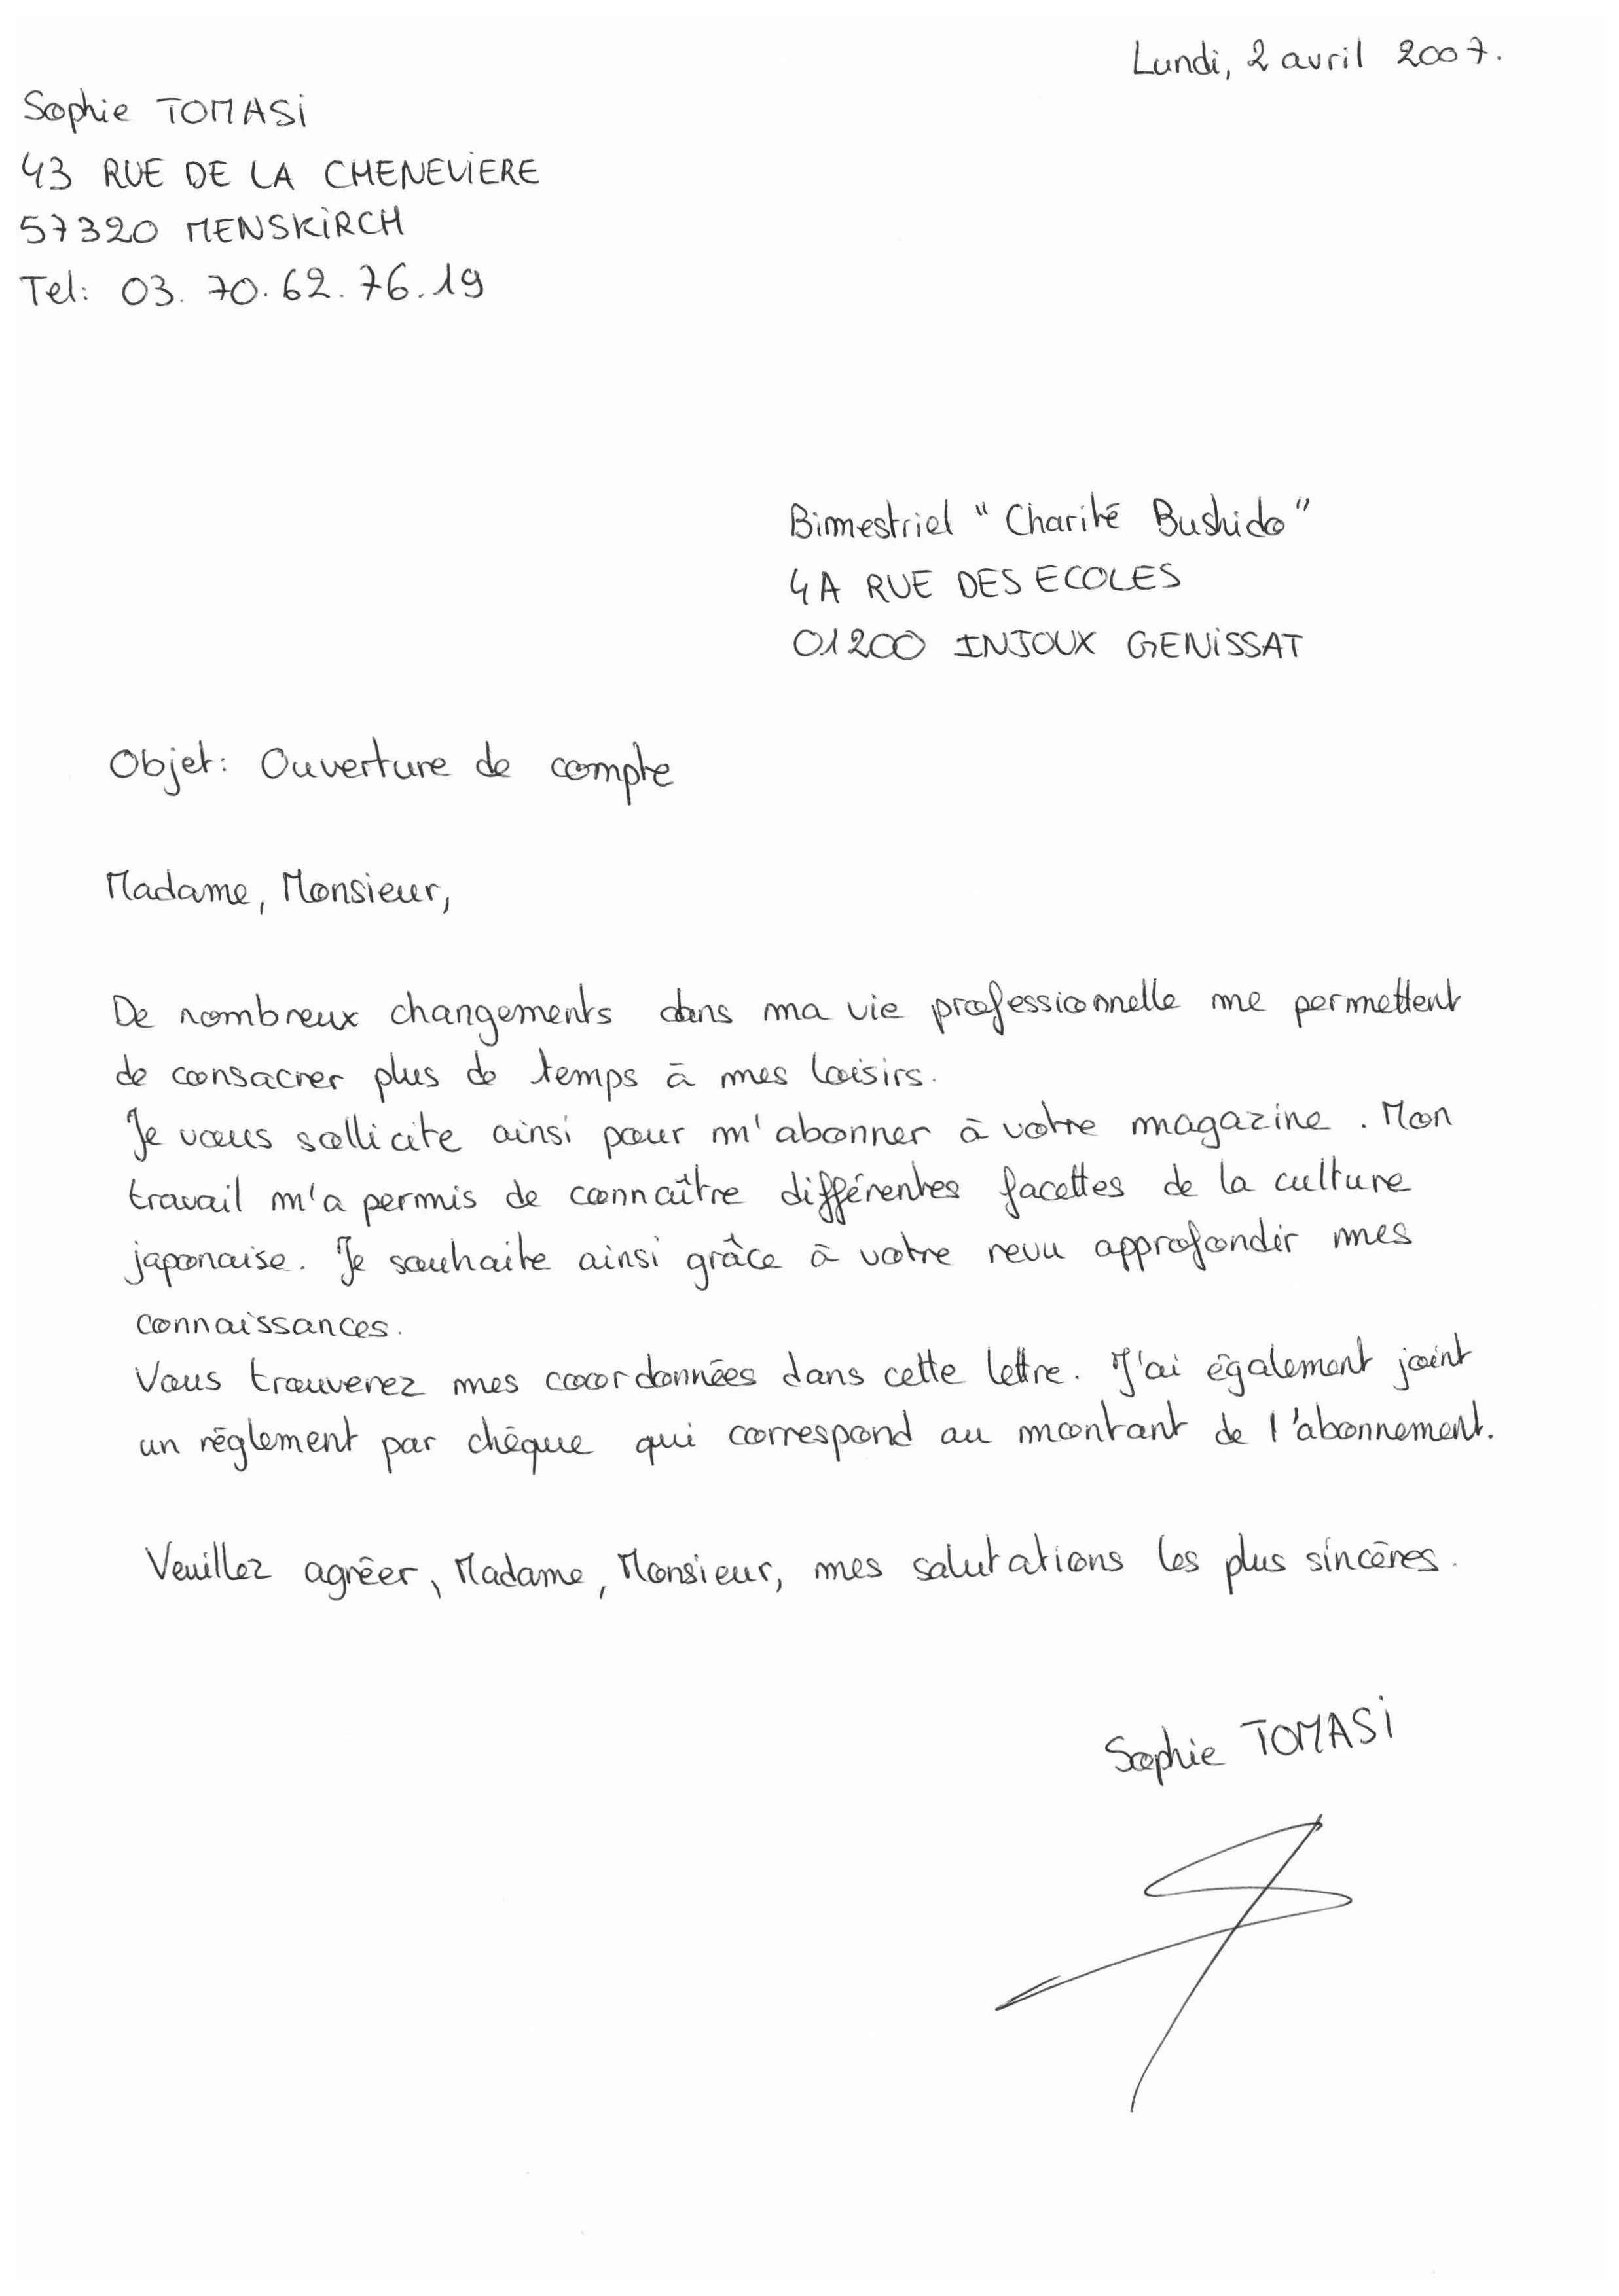 Lundi, 2 avril 2007.
Sophie TOMASi
43 RUE DE LA CHENEVIERE
57320 MENSKiRCH
Tel: 03. 70. 62. 76. 19
Bimestriel "Charité Bushido"
4A RUE DES ECOLES
01200 INJOUX GENiSSAT
Objet: Ouverture de compte
Madame, Monsieur,
De nombreux changements dans ma vie professionnelle me permettent
de consacrer plus de temps à mes loisirs.
Je vous sollicite ainsi pour m'abonner à votre magazine. Mon
travail m'a permis de connaître différentes facettes de la culture
japonaise. Je souhaite ainsi grâce à votre revu approfondir mes
connaissances.
Vous trouverez mes coordonnées dans cette lettre. J'ai également joint
un règlement par chèque qui correspond au montant de l'abonnement.
Veuillez agréer, Madame, Monsieur, mes salutations les plus sincères.
Sophie TOMASi